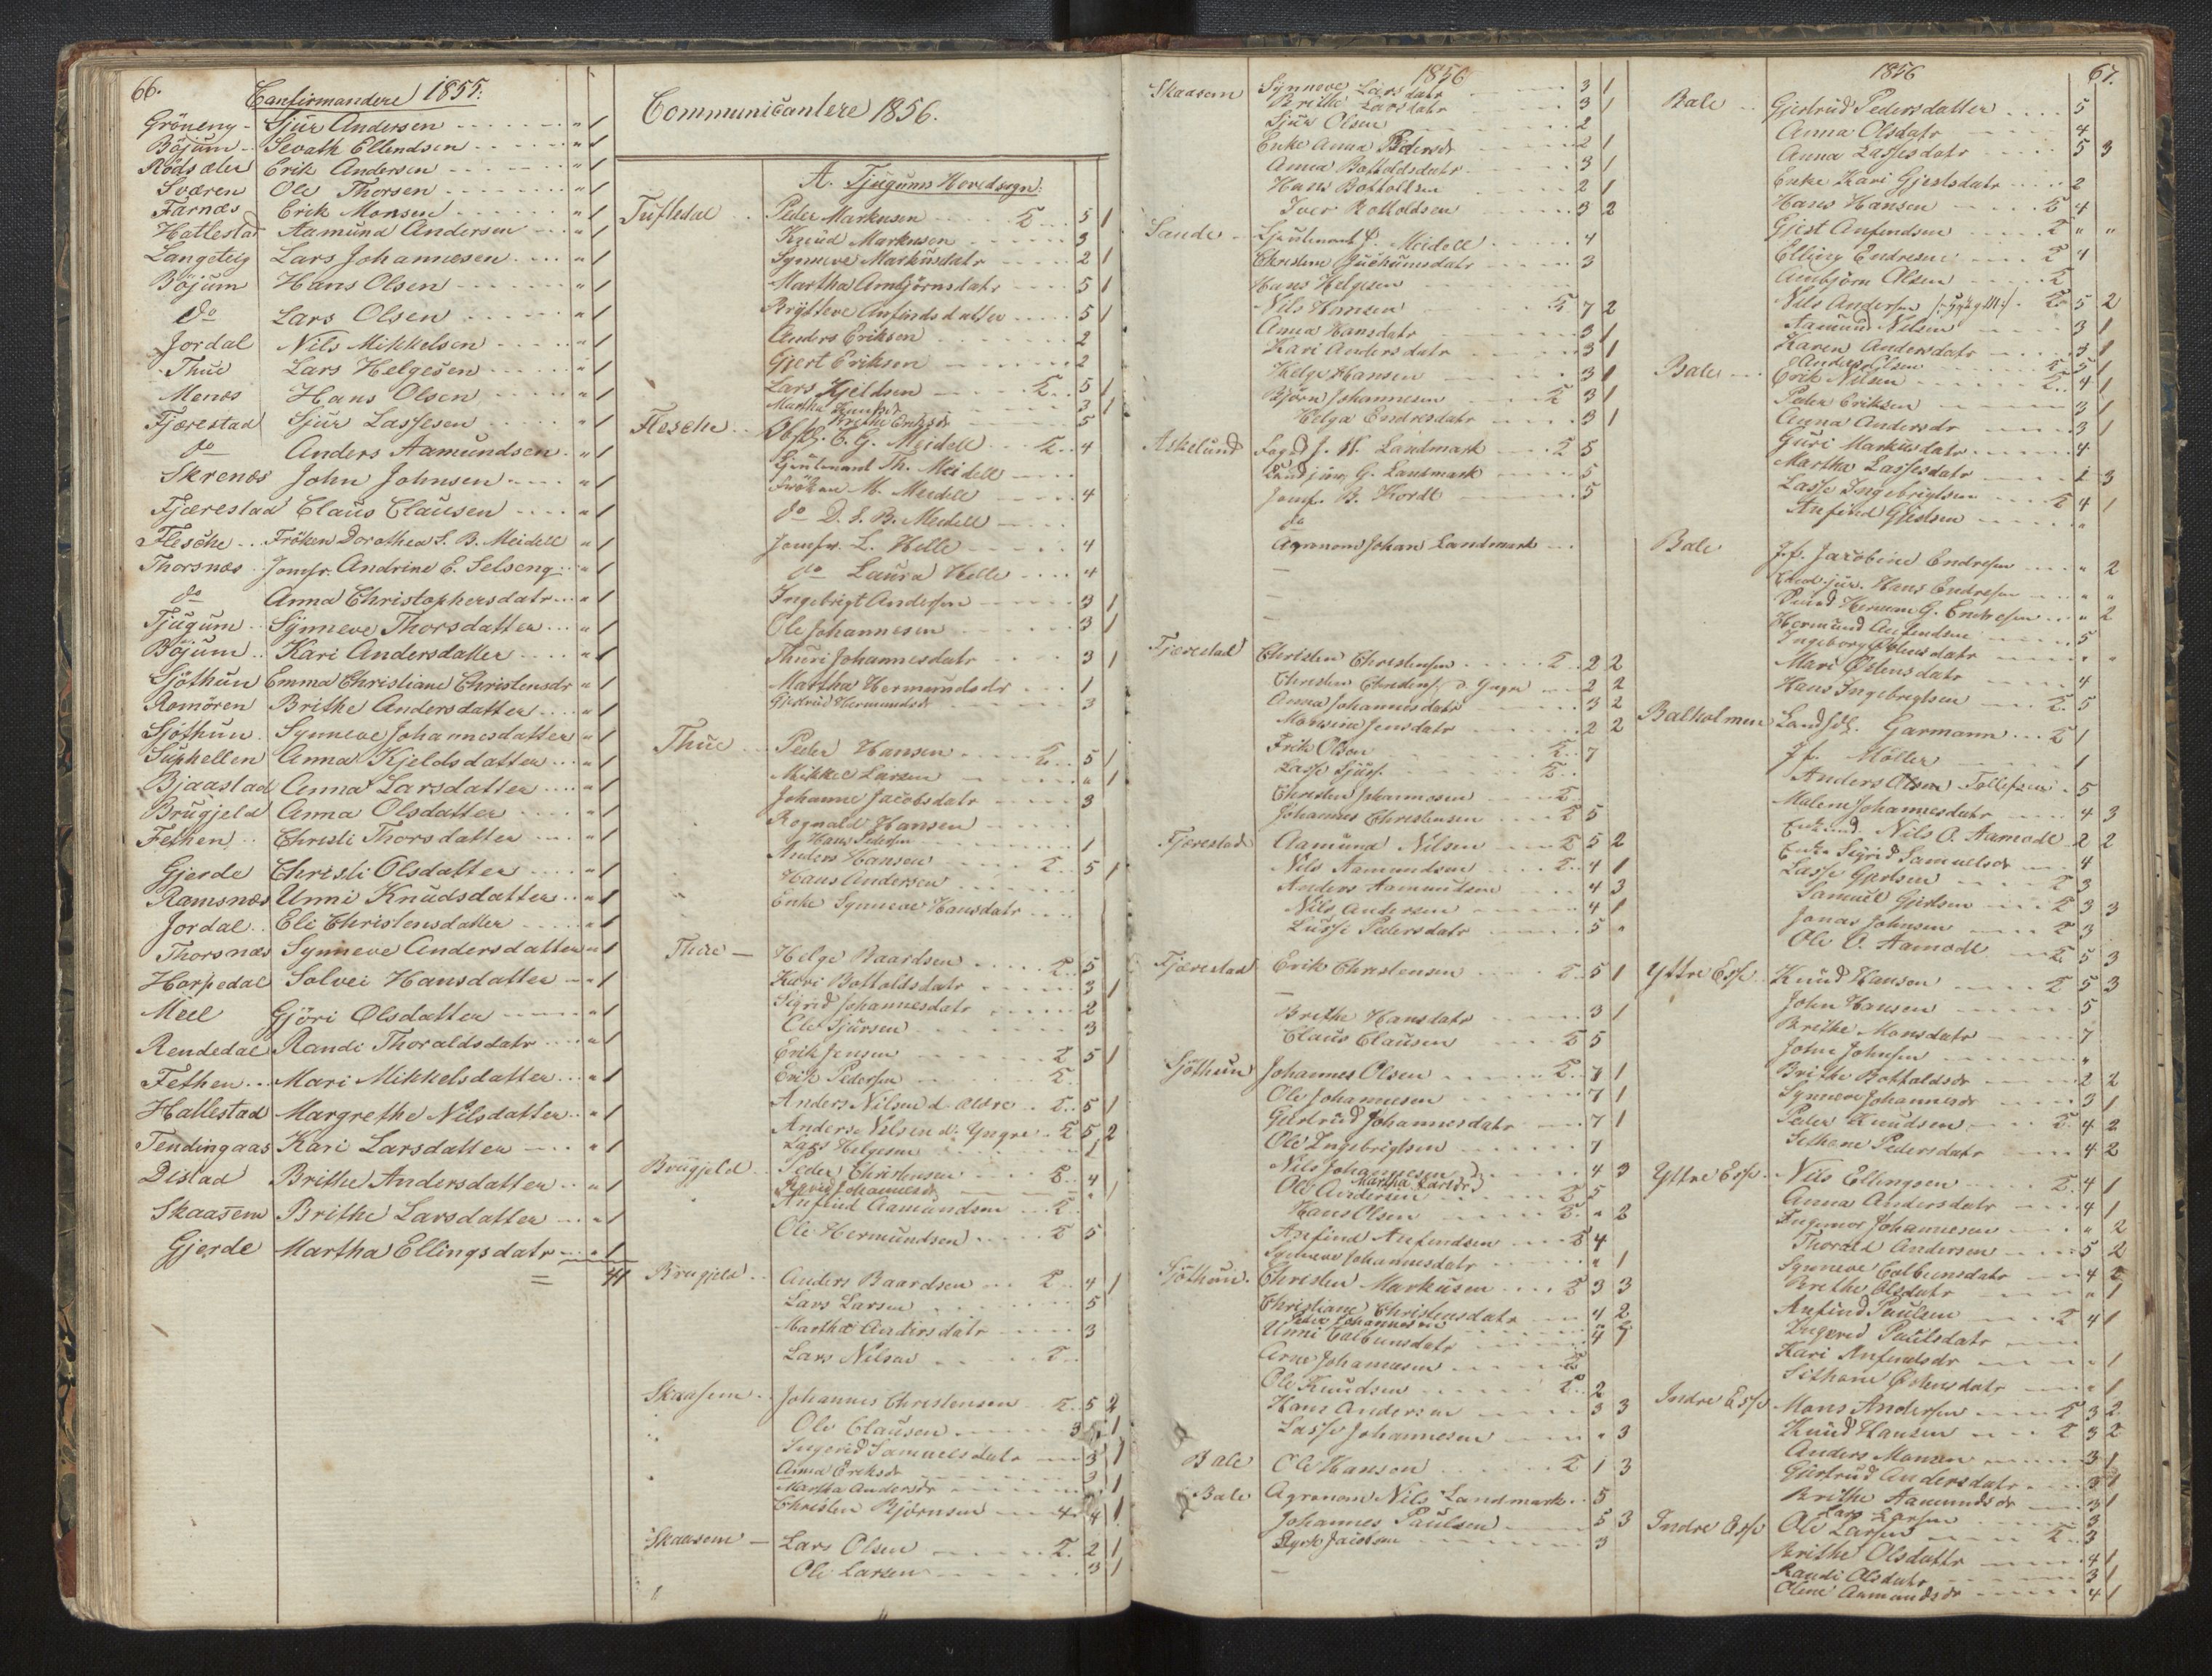 66.
Confirmandere 1855:
Gröneng - Sjur Andersen " 1
Böjum - Sevath Ellendsen " 1
Rödsæter Erik Andersen " 1
Sværen Ole Thorsen " 1
Farnæs Erik Monsen " 1
Hatlestad Aamund Andersen " 1
Langeteig Lars Johannesen " 1
Böjum Hans Olsen " 1
do Lars Olsen " 1
Jordal Nils Mikkelsen " 1
Thue Lars Helgesen " 1
Menæs Hans Olsen " 1
Fjærestad Sjur Lassesen " 1
do Anders Aamundsen " 1
Skrenæs John Johnsen " 1
Fjærestad Claus Clausen " 1
Flesche Fröken Dorothea S. B. Meidell " 1
Thorsnæs Jomfr. Andrine E. Selseng " 1
do Anna Christophersdatr " 1
Tjugum Synneve Thorsdatter " 1
Böjum Kari Andersdatter " 1
Sjöthun Emma Christiane Christensdr " 1
Romören Brithe Andersdatter " 1
Sjöthun Synneve Johannesdatter " 1
Suphellen Anna Kjeldsdatter " 1
Bjaastad Anna Larsdatter " 1
Brugjeld Anna Olsdatter " 1
Fethen Christi Thorsdatter " 1
Gjerde Christi Olsdatter " 1
Ramsnæs Unni Knudsdatter " 1
Jordal Eli Christensdatter " 1
Thorsnæs Synneve Andersdatter " 1
Horpedal Solvei Hansdatter " 1
Meel Gjöri Olsdatter " 1
Rendedal Randi Thoraldsdatr " 1
Fethen Mari Mikkelsdatter " 1
Hallestad Margrethe Nilsdatter " 1
Tendingaas Kari Larsdatter " 1
Distad Brithe Andersdatter " 1
Skaasem Brithe Larsdatter " 1
Gjerde Martha Ellingsdatr " 1
= 41
Communicantere 1856.
A. Tjugums Hovedsogn:
Tufledal Peder Markusen T 5 1
Knud Markusen 3
Synneve Markusdatr 2 1
Martha Ambjörnsdatr 5 1
Brytteve Anfindsdatter 5 1
Anders Eriksen 2
Gjert Eriksen 2
Lars Kjeldsen T 5 1
Martha Knudsdr 3 1
Brethe Eriksdr 5
Flesche Obstl. C. G. Meidell T 4
Lieutenant Th. Meidell
Fröken M. Meidell 4
do D. S. B. Meidell
Jomfr. L. Helle 4
do Laura Helle 4
Ingebrigt Andersen 3 1
Ole Johannesen 3 1
Thuri Johannesdatr 3 1
Martha Hermundsdr 1
Gjertrud Hermundsdr 3
Thue Peder Hansen T 5 1
Mikkel Larsen " 1
Johanne Jacobsdatr 3
Rognald Hansen
Hans Pedersen 1
Anders Hansen T 5 1
Hans Andersen
Enke Synneve Hansdatr
Thue Helge Baardsen T 5
Kari Bottoldsdatr 3 1
Sigrid Johannesdatr 2
Ole Sjursen 3
Erik Jensen T 5 1
Erik Pedersen T
Anders Nilsen d. ældre T 5 1
Anders Nilsen d. Yngre T 5 2
Lars Helgesen 1
Brugjeld Peder Christensen T 4
Johannesdr " 1
Anfind Aamundsen T
Ole Hermundsen T 5
Brugjeld Anders Baardsen T 4 1
Lars Larsen 5
Martha Andersdatr 3
Lars Nilsen T
Skaasem Johannes Christensen T 5 2
Ole Clausen 3 1
Ingerid Samuelsdatr 3 1
Anna Eriksdr 3
Martha Andersdr 1
Christen Björnsen 4 4 1
Skaasem Lars Olsen T 2 1
Ole Larsen 3 1
1856
Skaasem Synneve Larsdatr 3 1
Brithe Larsdatr 3 1
Sjur Olsen 2
Enke Anna Pedersdr 2 1
Anna Bottoldsdatr 3 1
Hans Bottoldsen 2 1
Iver Bottoldsen 3 2
Sande Lieutenant P. Meidell 4
Christine Joachumsdatr 3
Hans Helgesen
Nils Hansen T 7 2
Anna Hansdatr 3 1
Kari Andersdatr 3 1
Helge Hansen 3 1
Björn Johannesen T 3 1
Helga Endresdatr 3 1
Askelund Foged J. N. Landmark T 5
Cand jur G. Landmark 5
Jomf. B. Kordt 5
do
Agronom Johan Landmark
Fjærestad Christen Christensen T 2 2
Christen Christens. d. Yngre 2 2
Anna Johannesdatr 3 2
Jensdatr 2 2
Erik Olsen T 7
Lasse Sjurs. T
Christen Johannesen T
Johannes Christensen T 5
Fjærestad Aamund Nilsen T 5 2
Nils Aamundsen T 4 1
Anders Aamundsen 4 3
Nils Andersen 4 1
Lasse Pedersdatr 5 "
Fjærestad Erik Christensen T 5 1
Brithe Hansdatr 3 1
Claus Clausen T 5
Sjöthun Johannes Olsen T 7 1
Ole Johannesen 7 1
Gjertrud Johannesdatr 7 1
Ole Ingebrigtsen 7
Nils Johannesen 4 3
Martha Larsdr
Ole Andersen T 5
Hans Olsen T " 2
Anfind Anfindsen T 4
Synneve Johannesdatr " 1
Sjöthun Christen Markusen T 3 3
Christiane Christensdatr 4 2
Johannesen
Unni Colbensdatr 4
Arne Johannesen T
Ole Knudsen T 2
Hans Andersen 3 3
Lasse Johannesen " 3
Bale Ole Hansen T 1 3
Bale Agronom Nils Landmark 5
Johannes Paulsen 5 3
Styrk Jacobsen 3
1856 67.
Bale Gjertrud Pedersdatter 5
Anna Olsdatr 4
Anna Lassesdatr 5 3
Enke Kari Gjestsdatr 2
Hans Hansen T 4
Gjest Anfindsen T " "
Elling Endresen T 4
Ambjörn Olsen T
Nils Andersen T 5 2
Aamund Nilsen 3 1
Karen Andersdatr 3 1
Bale Anders Olsen T 5 1
Erik Nilsen T 4 1
Peder Eriksen 3 1
Anna Andersdr 3 1
Guri Markusdatr 4
Martha Lassesdatr 1 3
Lasse Ingebrigtsen T 4 1
Anfind Gjestsen "
Bale Jf. Jacobine Endresen " 2
Cand. jur. Hans Endresen " "
Herman G. Endresen " 2
Hermund Anfindsen 5
Ingeborg Ølsensdatr " "
Mari Østensdatr 4
Hans Ingebrigtsen T 5
Balholmen Landhdl. Garmann T 1
Jf. Möller 1
Anders Olsen Tollefsen 5
Malene Johannesdatr 4 3
Nils O. Aamodt 2 2
Enke Sigrid Samuelsdr 4
Lasse Gjertsen T 3
Samuel Gjertsen T 3 3
Jonas Johnsen T 3
Ole O. Aamodt T 5 3
Yttre Esse Knud Hanson T 5 3
John Hansen 5
Brithe Monsdatr 7
John Johnsen "
Brithe Bottoldsdr 2 2
Synneve Johannesdr 3 1
Peder Knudsen T 4 2
Sithane Pedersdatr 4 2
Yttre Esse Nils Ellingsen T 4 1
Anna Andersdatr 4 1
Ingemor Johannesen " 2
Thorald Andersen 5 2
Synneve Colbensdatr 4 2
Brethe Olsdatr " 1
Anfind Paulsen T 4 1
Ingerid Paulsdatr
Kari Anfindsdr " 1
Sithane Østensdatr " 1
Indre Esse Mons Andersen T 3 2
Knud Hansen T 3 2
Anders Monsen 3 1
Gjertrud Andersdatr 3 1
Brithe Aamundsdr 3 1
Lars Larsen 3
Indre Esse Ole Larsen T 3
Brithe Olsdattr 4 1
Randi Olsdatr 3 1
Olene Aamundsdr 4 1